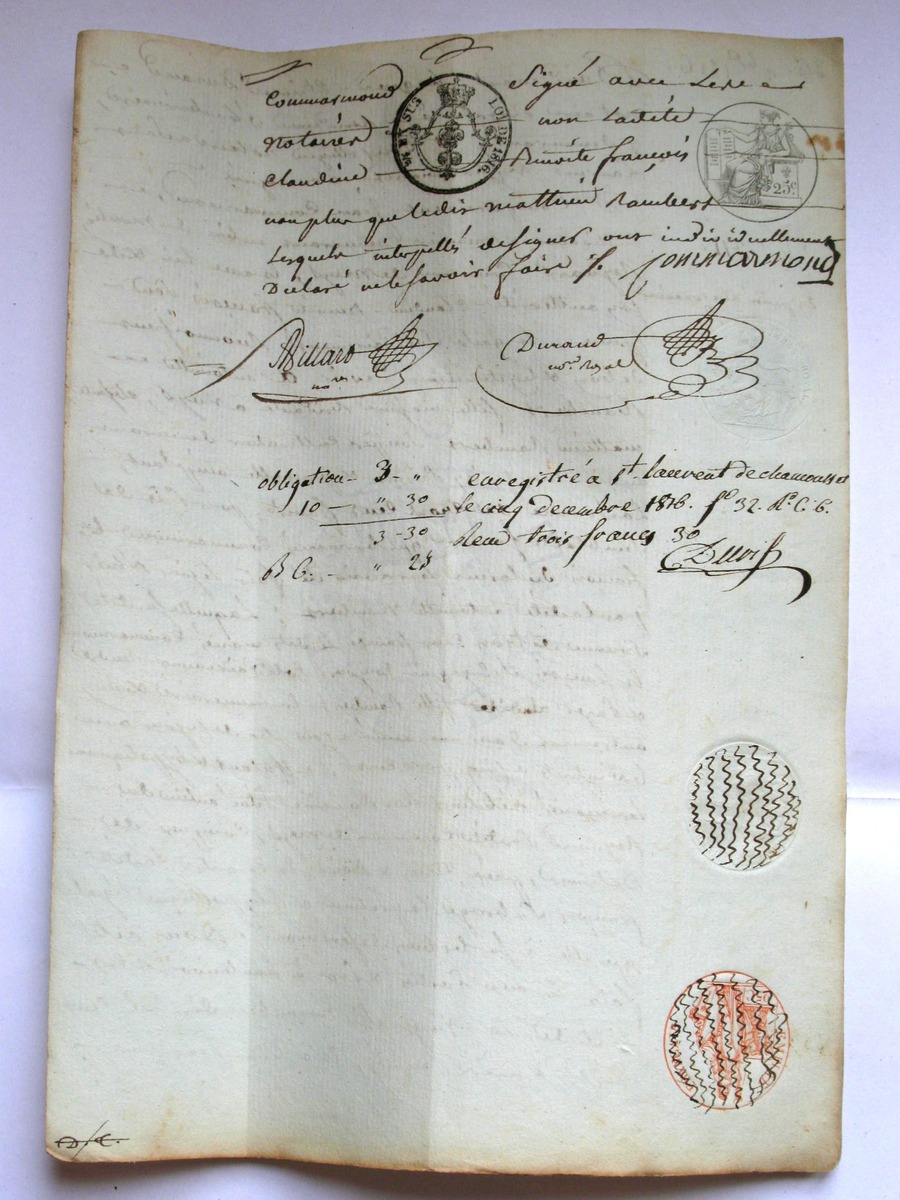 Commarmond Signé avec les
notaires non ladite
Claudine Benoite françois
non plus que ledit matthieu Rambert
Lesquels interpellés designer ont individuellement
Déclaré ne le savoir faire /. Commarmond
EN SUS
LOI DE 1816.
25c
Billard
nore
Durand
nore Royal
obligation - 3 - " enregistré à St. laurent de chamousset
10 - " 30 le cinq decembre 1816. fo 32. Ro C. 6.
3 - 30 Reçu trois francs 30
" 25
D/C.